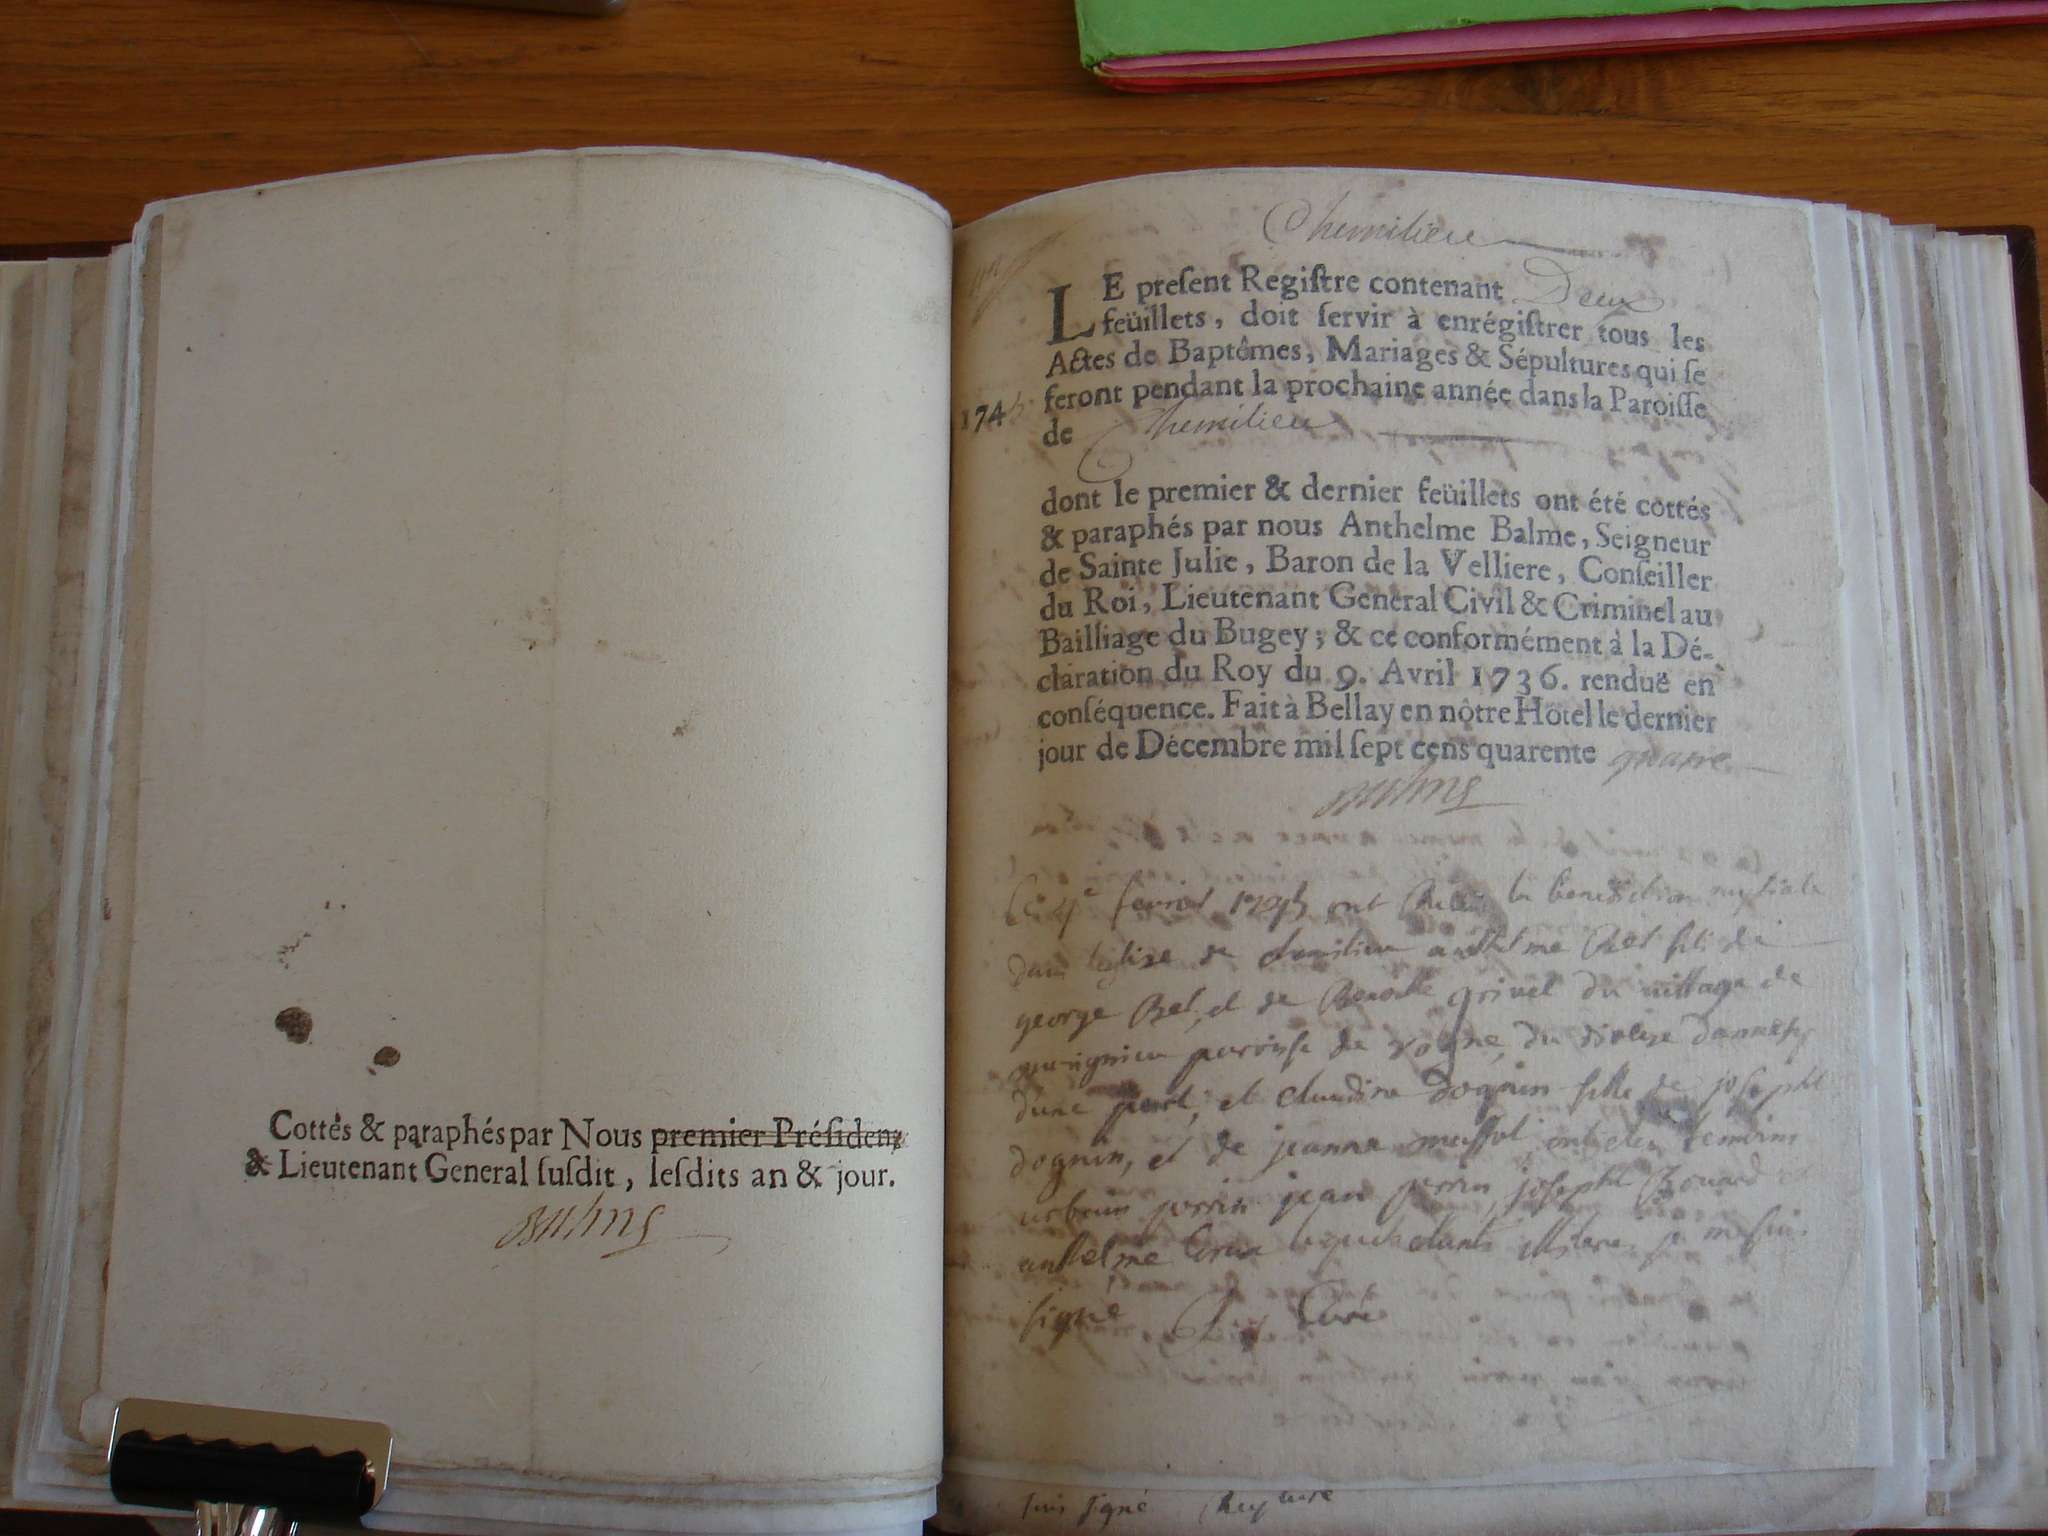 Cottés & paraphés par Nous premier Présiden
& Lieutenant General ſuſdit, leſdits an & jour.
Chemilieu
LE preſent Regiſtre contenant Deux
feüillets, doit ſervir à enrégiſtrer tous les
Actes de Baptêmes, Mariages & Sépultures qui ſe
feront pendant la prochaine année dans la Paroiſſe
1745
de Chemilieu
dont le premier & dernier feüillets ont été cottés
& paraphés par nous Anthelme Balme, Seigneur
de Sainte Julie, Baron de la Velliere, Conſeiller
du Roi, Lieutenant General Civil & Criminel au
Bailliage du Bugey; & ce conformément à la Dé-
claration du Roy du 9. Avril 1736. renduë en
conſéquence. Fait à Bellay en nôtre Hôtel le dernier
jour de Décembre mil ſept cens quarente quatre
Balme
Le 4e fevrier 1745 ont la benediction nuptiale
dans de chemilieu anthelme Bel fils de
george Bel, et de Benoite grivel du village de
paroisse de du diocese
d'une part, et claudine dognin fille de joseph
dognin, et de jeanne temoins
urbain perrin jean perrin, joseph
anthelme
signé Curé
suis signé